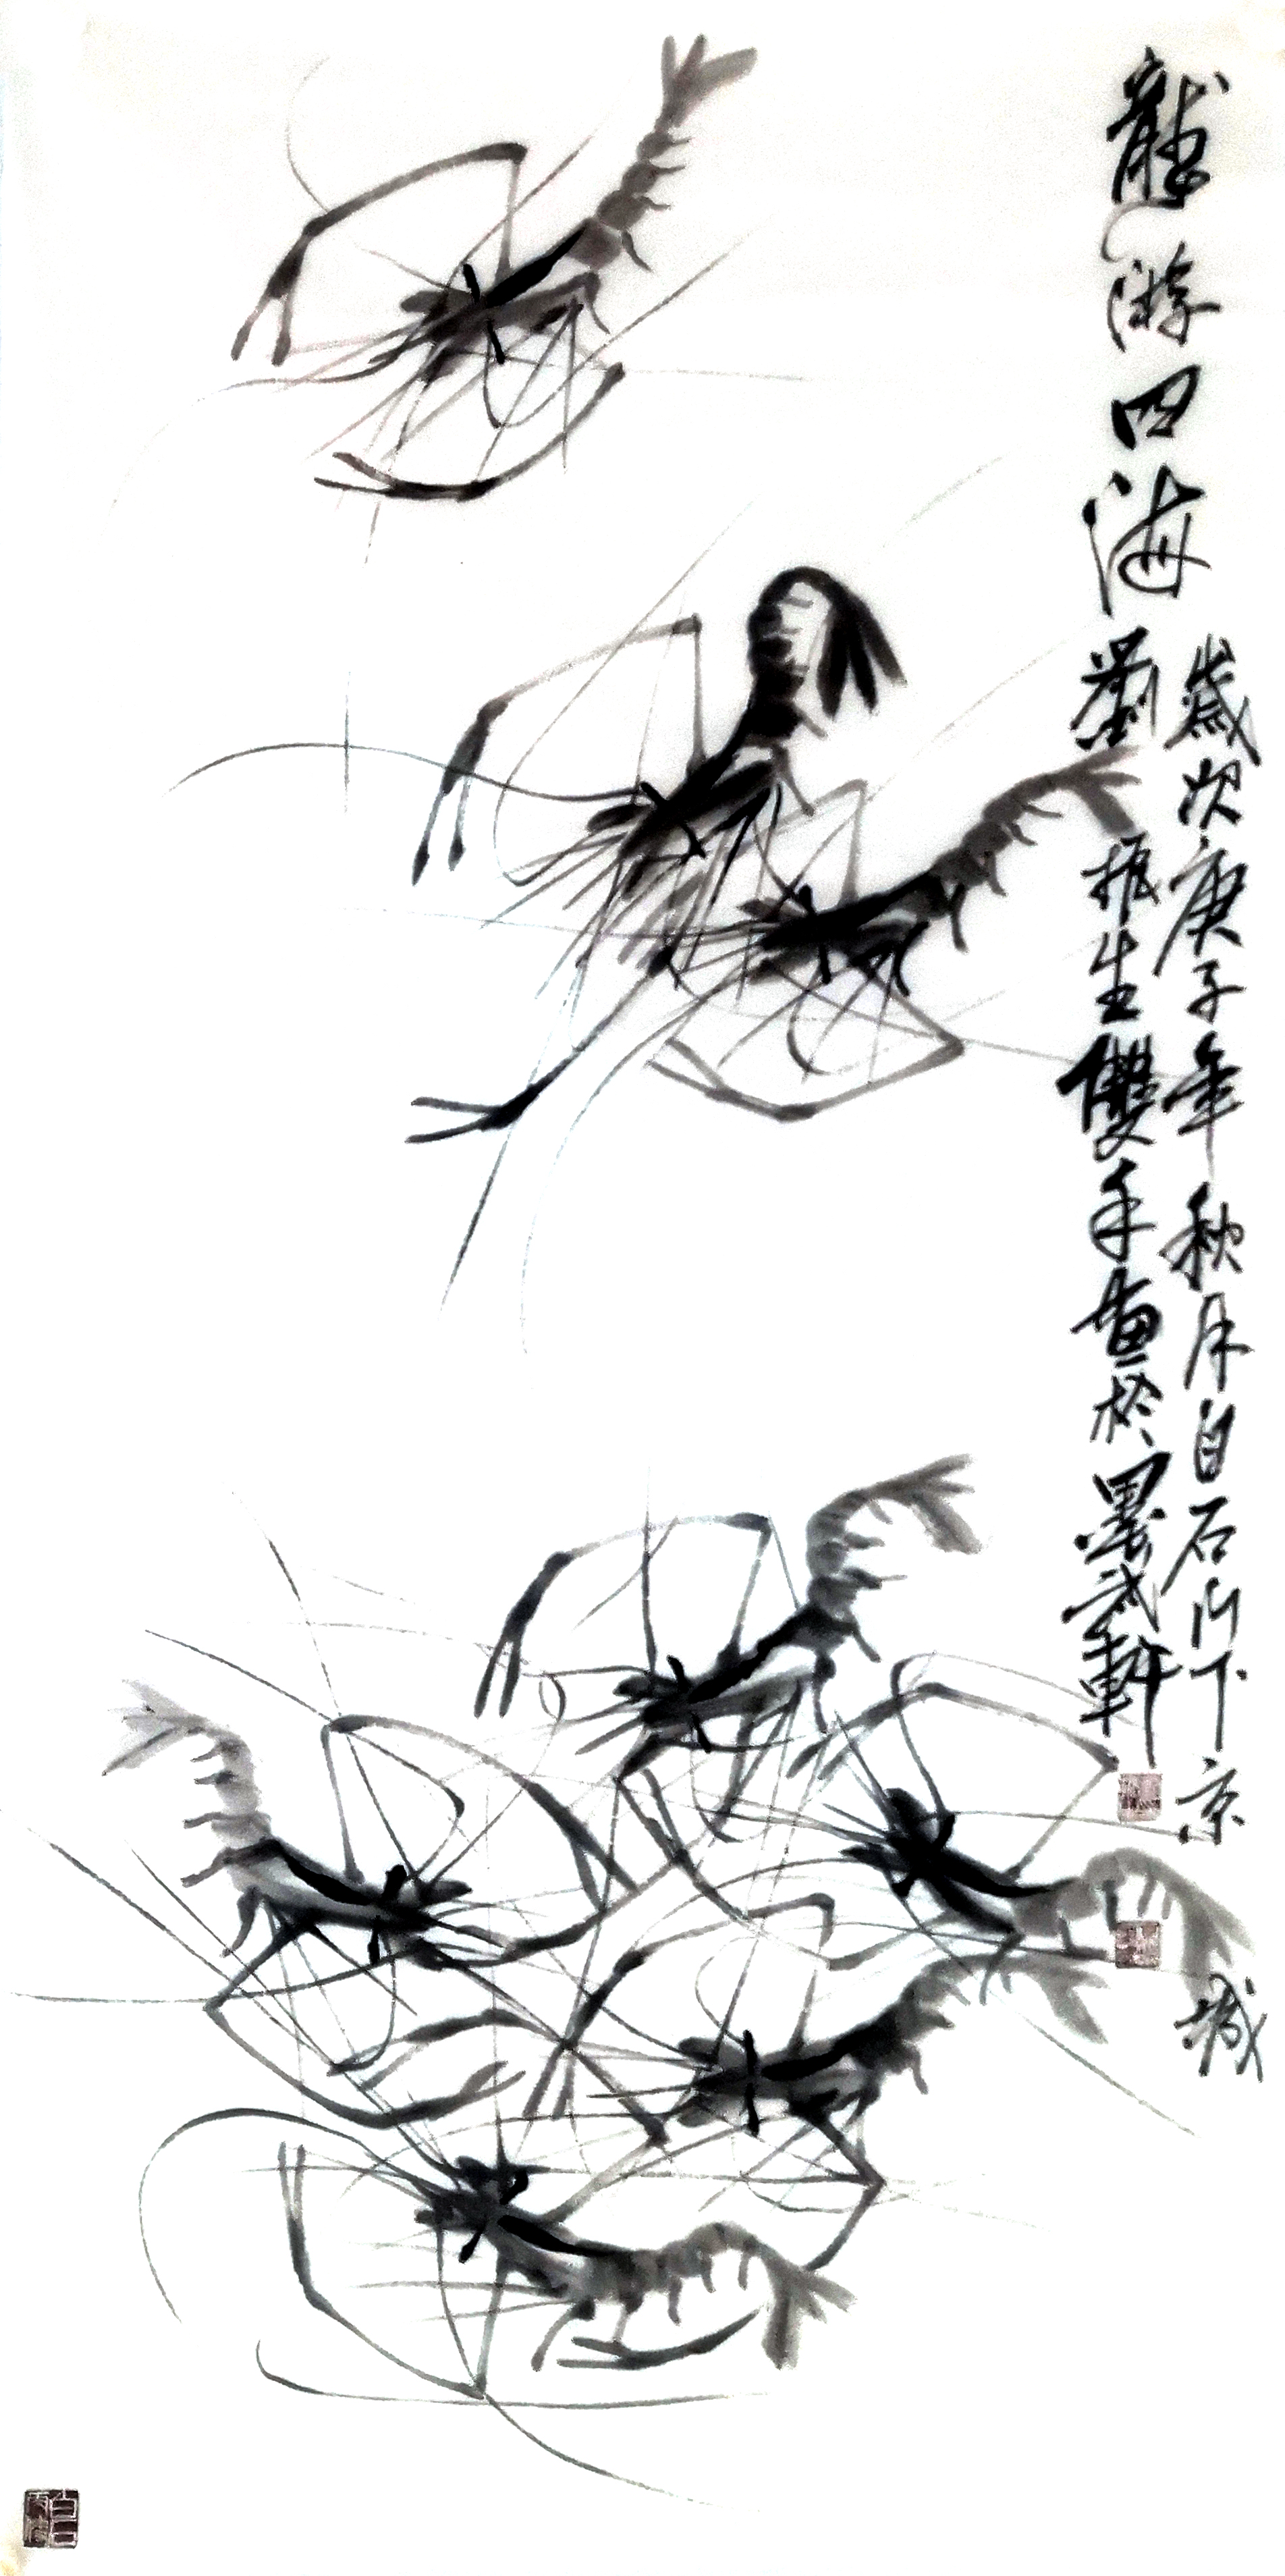 龍游四海
歲次庚子年秋月白石門下京城
劉振生雙手畫於墨武軒